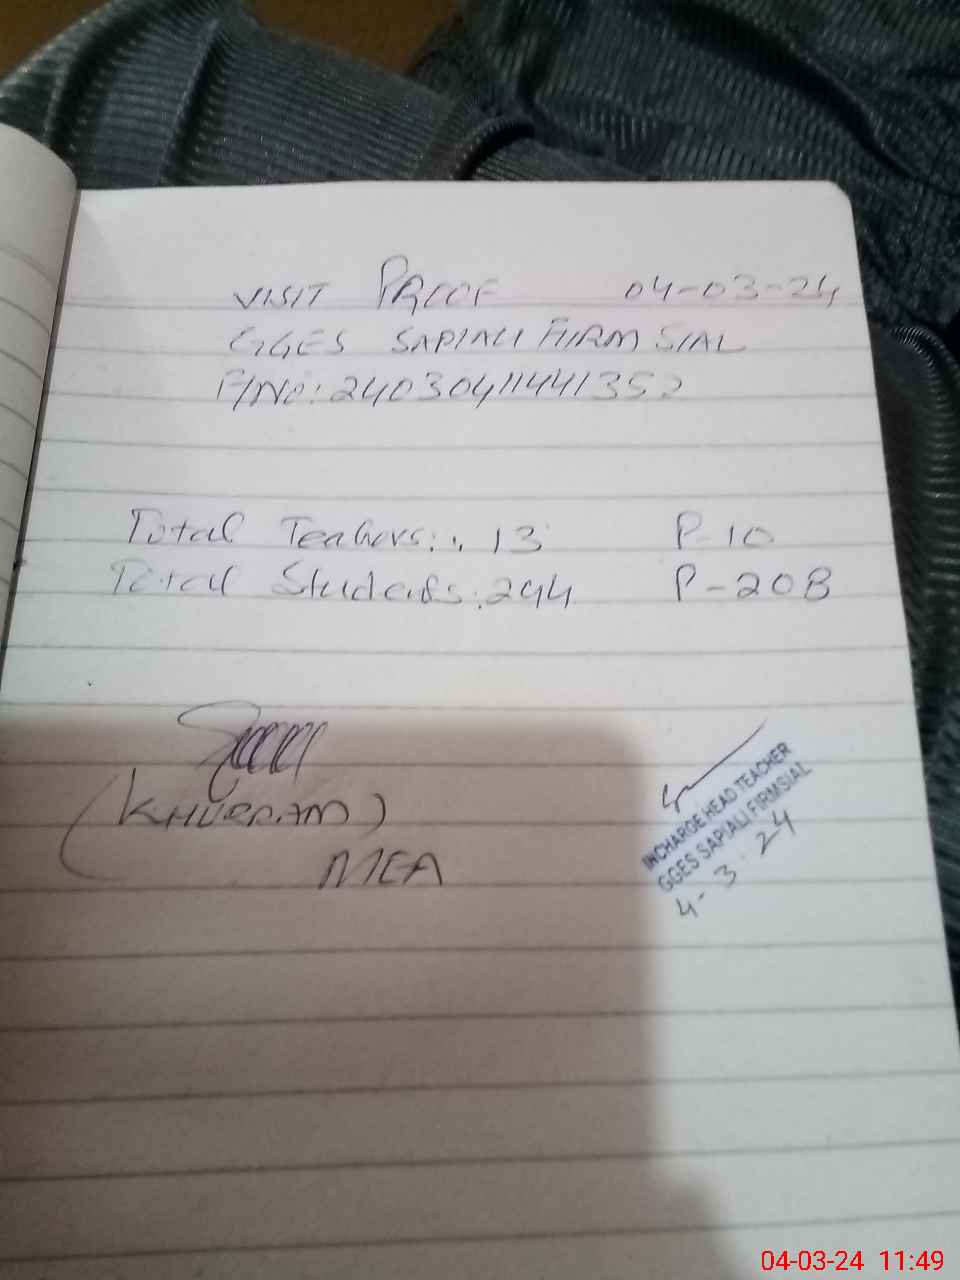 VISIT PROOF 04-03-24
GGES SAPIALI FIRM SIAL
F/NO: 24030411441352
Total Teahers: 13 P-10
Total Students: 244 P-208
(KHURRAM)
MEA
INCHARGE HEAD TEACHER
GGES SAPIALI FIRMSIAL
4-3-24
04-03-24 11:49